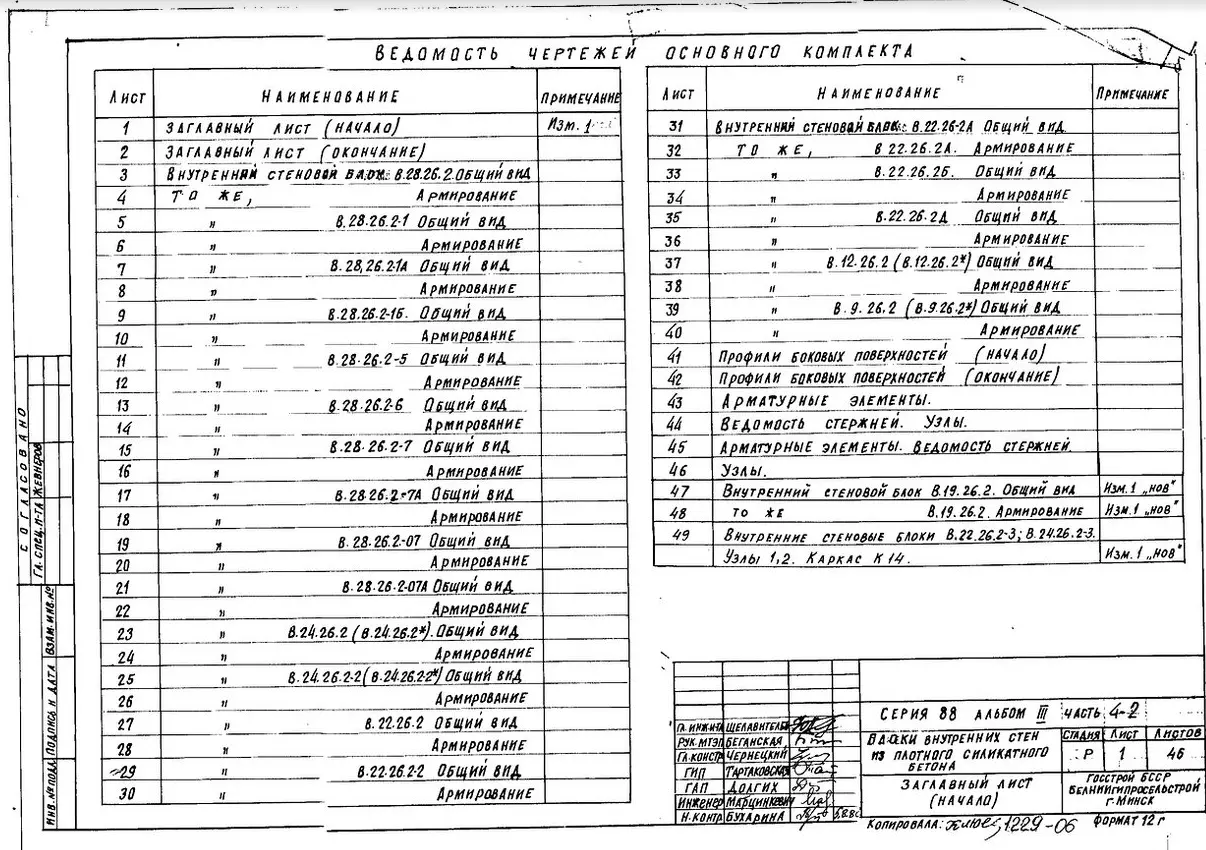 Ведомость чертежей основного комплекта
Лист Наименование Примечание
1 Заглавный лист (начало) Изм. 1
2 Заглавный лист (окончание)
3 Внутренний стеновой блок В.28.26.2. Общий вид
4 То же, Армирование
5 " В.28.26.2-1 Общий вид
6 " Армирование
7 " В.28,26.2-1А Общий вид
8 " Армирование
9 " В.28.26.2-1б. Общий вид
10 " Армирование
11 " В.28.26.2-5 Общий вид
12 " Армирование
13 " В.28.26.2-6 Общий вид
14 " Армирование
15 " В.28.26.2-7 Общий вид
16 " Армирование
17 " В.28.26.2-7А Общий вид
18 " Армирование
19 " В.28.26.2-07 Общий вид
20 " Армирование
21 " В.28.26.2-07А Общий вид
22 " Армирование
23 " В.24.26.2 (В.24.26.2*). Общий вид
24 " Армирование
25 " В.24.26.2-2 (В.24.26.2-2*) Общий вид
26 " Армирование
27 " В.22.26.2 Общий вид
28 " Армирование
29 " В.22.26.2-2 Общий вид
30 " Армирование
Лист Наименование Примечание
31 Внутренний стеновой блок: В.22.26-2А Общий вид
32 То же, В 22.26.2А. Армирование
33 " В.22.26.2б. Общий вид
34 " Армирование
35 " В.22.26.2Д Общий вид
36 " Армирование
37 " В.12.26.2 (В.12.26.2*) Общий вид
38 " Армирование
39 " В.9.26.2 (В.9.26.2*) Общий вид
40 " Армирование
41 Профили боковых поверхностей (начало)
42 Профили боковых поверхностей (окончание)
43 Арматурные элементы.
44 Ведомость стержней. Узлы.
45 Арматурные элементы. Ведомость стержней.
46 Узлы.
47 Внутренний стеновой блок В.19.26.2. Общий вид Изм.1 „нов"
48 то же В.19.26.2. Армирование Изм.1 „нов"
49 Внутренние стеновые блоки В.22.26.2-3; В.24.26.2-3.
Узлы 1,2. Каркас К14. Изм.1 „нов"
Согласовано
Гл. спец. п-та Жевнеров
Взам. инв. №
Подпись и дата
Инв. № подл.
Гл. инж. ин-та Щелавитель
Рук. МТЭП Беганская
Гл. констр Чернецкий
ГИП Тартаковская
ГАП Долгих
Инженер Марцинкевич
Н. контр Бухарина
Серия 88 альбом III часть 4-2
Блоки внутренних стен
из плотного силикатного
бетона
Стадия Лист Листов
Р 1 46
Заглавный лист
(начало)
Госстрой БССР
Белниигипросельстрой
г. Минск
Копировала: 1229-06 Формат 12г